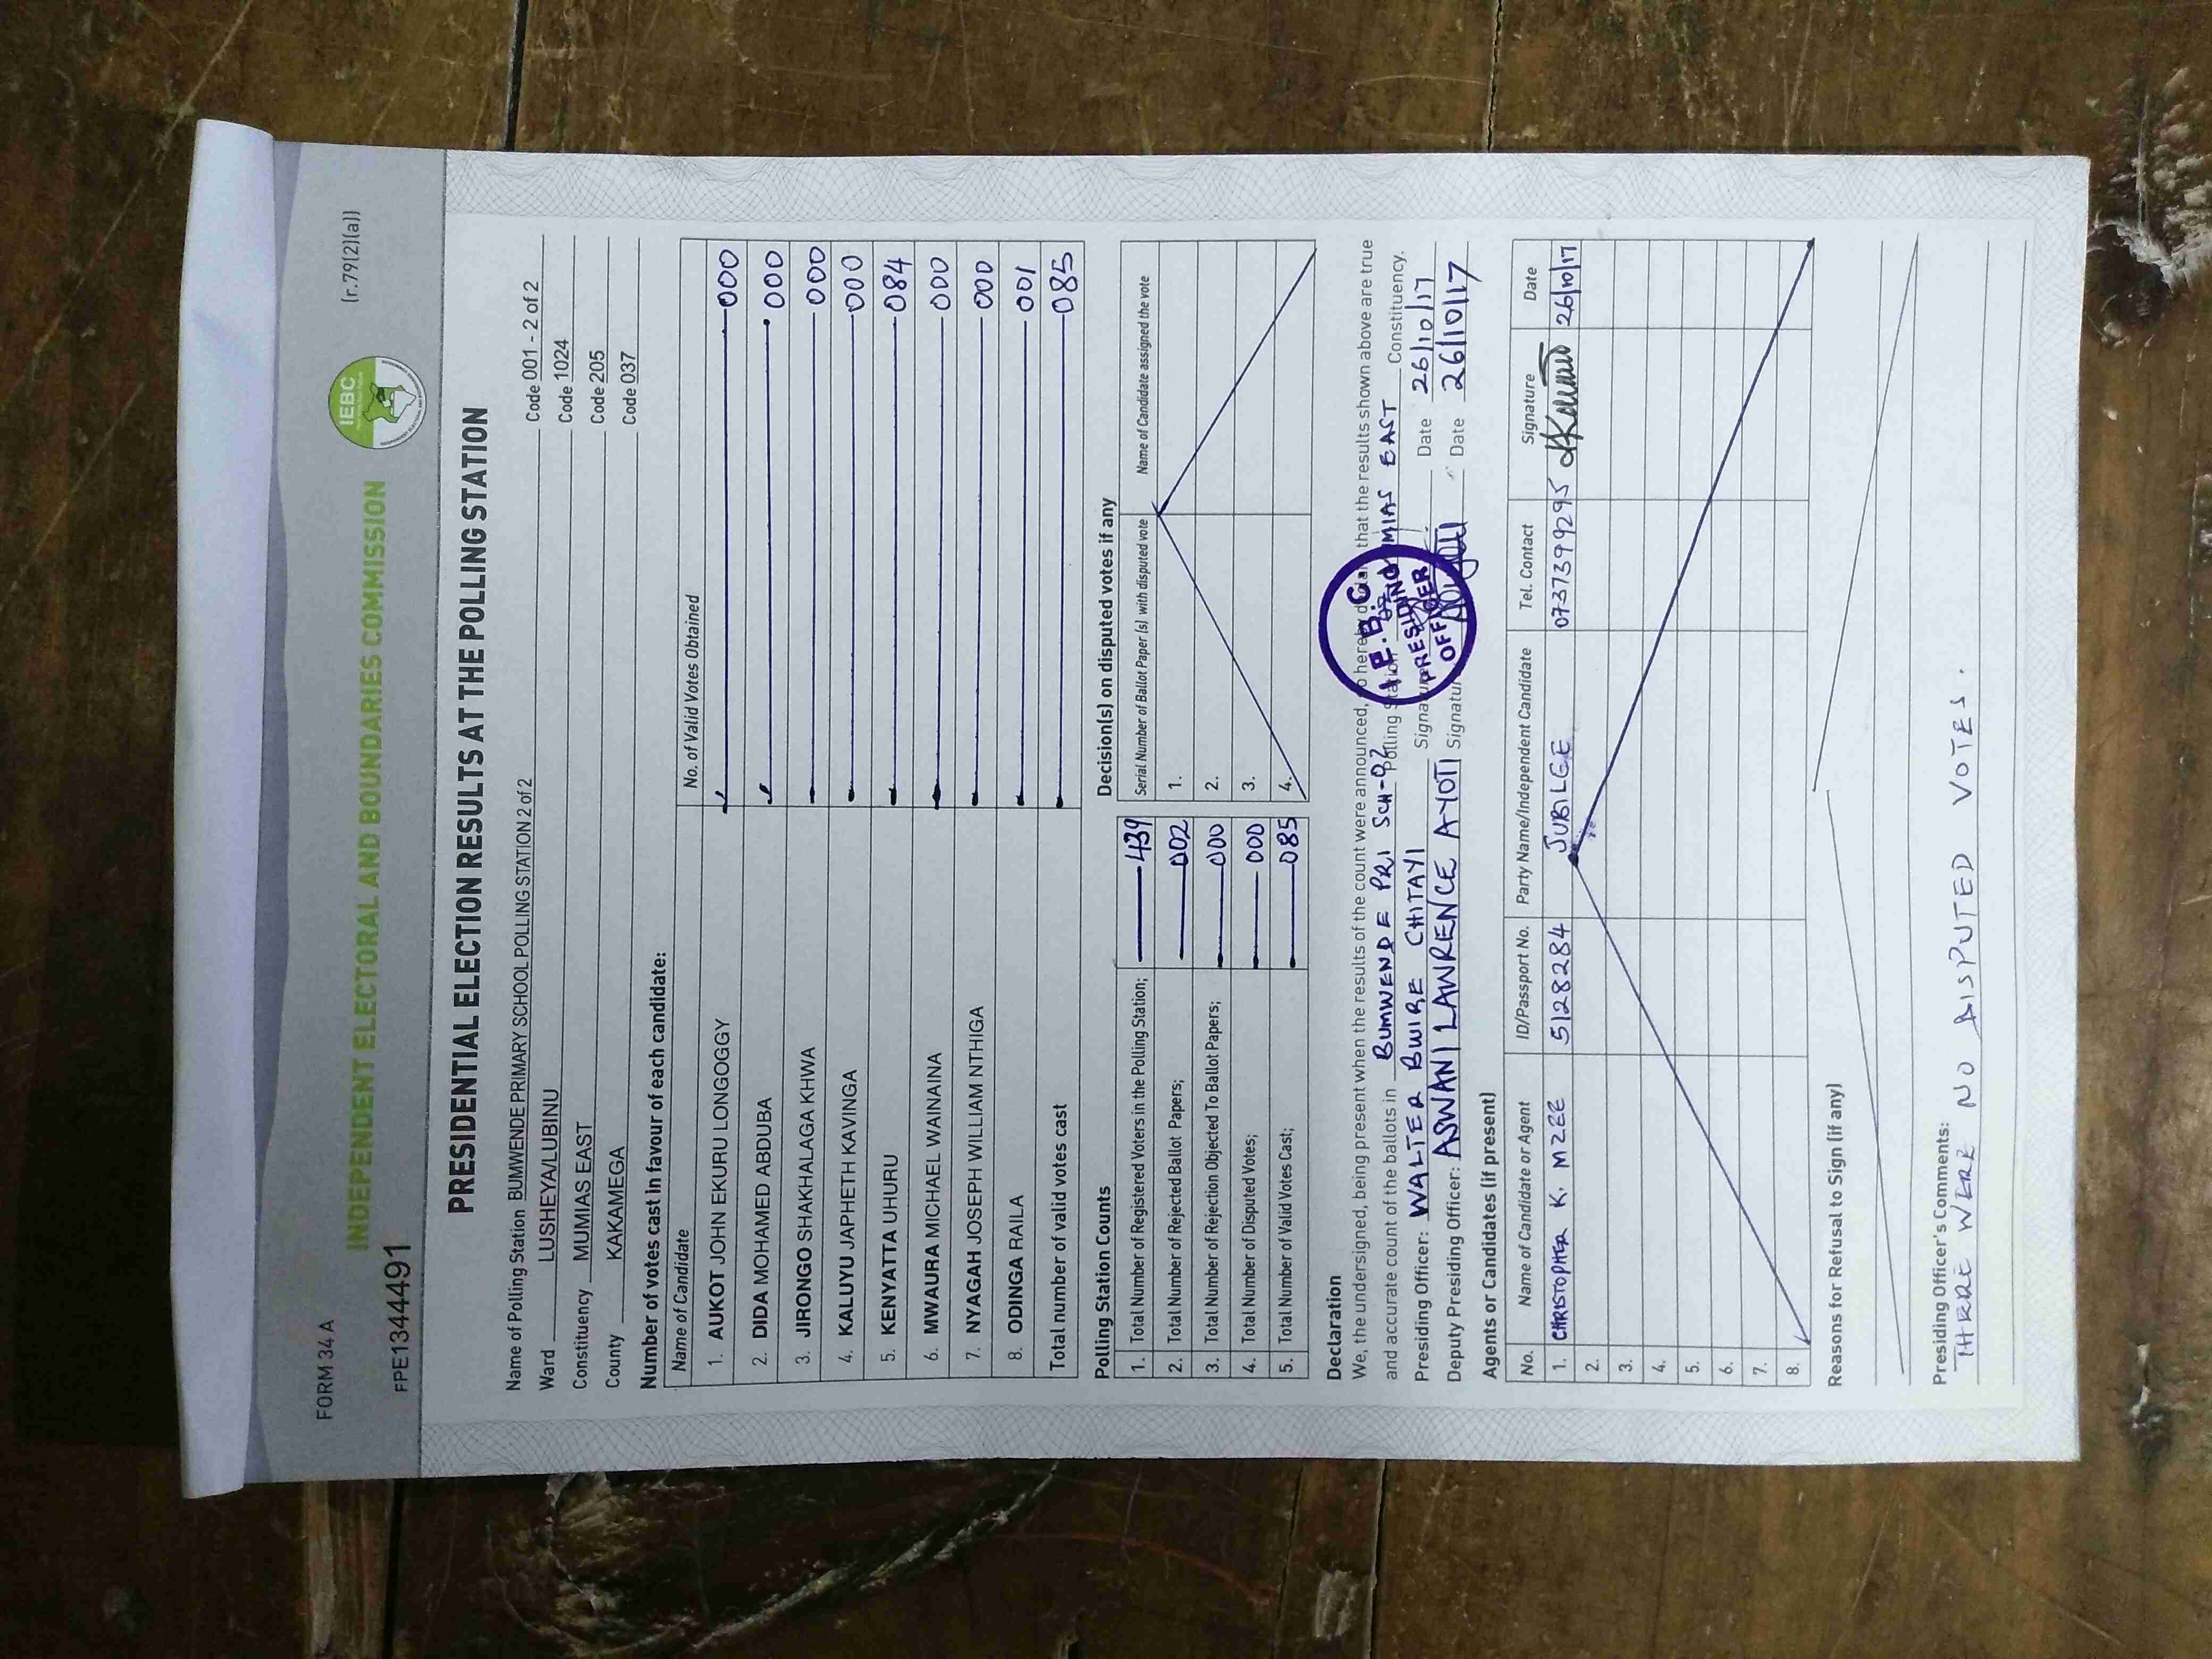 FORM 34 A
(r.79(2)(a))
IEBC
INDEPENDENT ELECTORAL AND BOUNDARIES COMMISSION
FPE1344491
PRESIDENTIAL ELECTION RESULTS AT THE POLLING STATION
Name of Polling Station BUMWENDE PRIMARY SCHOOL POLLING STATION 2 of 2 Code 001 - 2 of 2
Ward LUSHEYA/LUBINU Code 1024
Constituency MUMIAS EAST Code 205
County KAKAMEGA Code 037
Number of votes cast in favour of each candidate:
Name of Candidate No. of Valid Votes Obtained
1. AUKOT JOHN EKURU LONGOGGY 000
2. DIDA MOHAMED ABDUBA 000
3. JIRONGO SHAKHALAGA KHWA 000
4. KALUYU JAPHETH KAVINGA 000
5. KENYATTA UHURU 084
6. MWAURA MICHAEL WAINAINA 000
7. NYAGAH JOSEPH WILLIAM NTHIGA 000
8. ODINGA RAILA 001
Total number of valid votes cast 085
Polling Station Counts
1. Total Number of Registered Voters in the Polling Station; 439
2. Total Number of Rejected Ballot Papers; 002
3. Total Number of Rejection Objected To Ballot Papers; 000
4. Total Number of Disputed Votes; 000
5. Total Number of Valid Votes Cast; 085
Decision(s) on disputed votes if any
Serial Number of Ballot Paper (s) with disputed vote Name of Candidate assigned the vote
1.
2.
3.
4.
Declaration
We, the undersigned, being present when the results of the count were announced, do hereby that the results shown above are true
and accurate count of the ballots in BUMWENDE PRI SCH-02 Polling Station MUMIAS EAST Constituency.
Presiding Officer: WALTER BWIRE CHITAYI Signature Date 26/10/17
Deputy Presiding Officer: ASWANI LAWRENCE AYOTI Signature Date 26/10/17
I.E.B.C
PRESIDING
OFFICER
Agents or Candidates (if present)
No. Name of Candidate or Agent ID/Passport No. Party Name/Independent Candidate Tel. Contact Signature Date
1. CHRISTOPHER K. MZEE 5128284 JUBILEE 0737399295 26/10/17
2.
3.
4.
5.
6.
7.
8.
Reasons for Refusal to Sign (if any)
Presiding Officer's Comments:
THERE WERE NO DISPUTED VOTES.